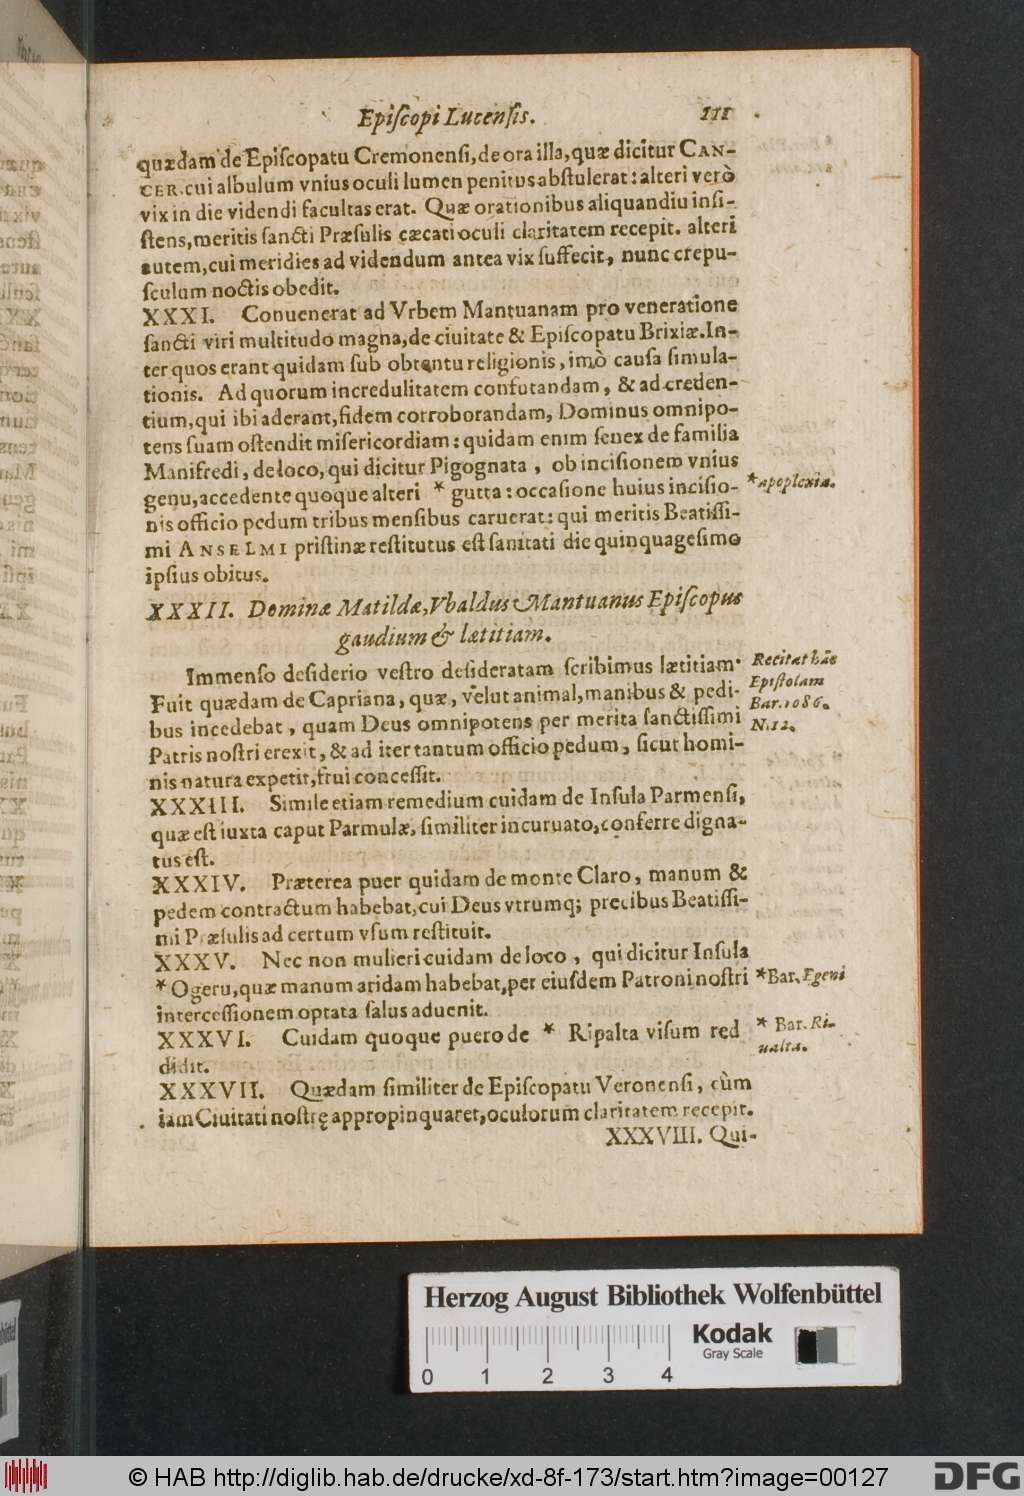 Epiſcopi Lucenſis. 111
quædam de Epiſcopatu Cremonenſi, de ora illa, quæ dicitur CAN-
CER. cui albulum vnius oculi lumen penitus abſtulerat: alteri verò
vix in die videndi facultas erat. Quæ orationibus aliquandiu inſi-
ſtens, meritis ſancti Præſulis cæcati oculi claritatem recepit. alteri
autem, cui meridies ad videndum antea vix ſuffecit, nunc crepu-
ſculum noctis obedit.
XXXI. Conuenerat ad Vrbem Mantuanam pro veneratione
ſancti viri multitudo magna, de ciuitate & Epiſcopatu Brixiæ. In-
ter quos erant quidam ſub obtentu religionis, imò cauſa ſimula-
tionis. Ad quorum incredulitatem confutandam, & ad creden-
tium, qui ibi aderant, fidem corroborandam, Dominus omnipo-
tens ſuam oſtendit miſericordiam: quidam enim ſenex de familia
Manifredi, de loco, qui dicitur Pigognata, ob inciſionem vnius
genu, accedente quoque alteri * gutta: occaſione huius inciſio- *apoplexia.
nis officio pedum tribus menſibus caruerat: qui meritis Beatiſſi-
mi ANSELMI priſtinæ reſtitutus eſt ſanitati die quinquageſimo
ipſius obitus.
XXXII. Dominæ Matildæ, Vbaldus Mantuanus Epiſcopus
gaudium & lætitiam.
Immenſo deſiderio veſtro deſideratam ſcribimus lætitiam. Recitat hãc
Fuit quædam de Capriana, quæ, velut animal, manibus & pedi- Epiſtolam
bus incedebat, quam Deus omnipotens per merita ſanctiſſimi Bar. 1086.
Patris noſtri erexit, & ad iter tantum officio pedum, ſicut homi- N. 12.
nis natura expetit, frui conceſſit.
XXXIII. Simile etiam remedium cuidam de Inſula Parmenſi,
quæ eſt iuxta caput Parmulæ, ſimiliter incuruato, conferre digna-
tus eſt.
XXXIV. Præterea puer quidam de monte Claro, manum &
pedem contractum habebat, cui Deus vtrumq; precibus Beatiſſi-
mi Præſulis ad certum vſum reſtituit.
XXXV. Nec non mulieri cuidam de loco, qui dicitur Inſula
* Ogeru, quæ manum aridam habebat, per eiuſdem Patroni noſtri *Bar. Egeni
interceſſionem optata ſalus aduenit.
XXXVI. Cuidam quoque puero de * Ripalta viſum red * Bar. Ri-
didit. ualta.
XXXVII. Quædam ſimiliter de Epiſcopatu Veronenſi, cùm
iam Ciuitati noſtrę appropinquaret, oculorum claritatem recepit.
XXXVIII. Qui-
Herzog August Bibliothek Wolfenbüttel
Kodak
Gray Scale
0 1 2 3 4
© HAB http://diglib.hab.de/drucke/xd-8f-173/start.htm?image=00127
DFG